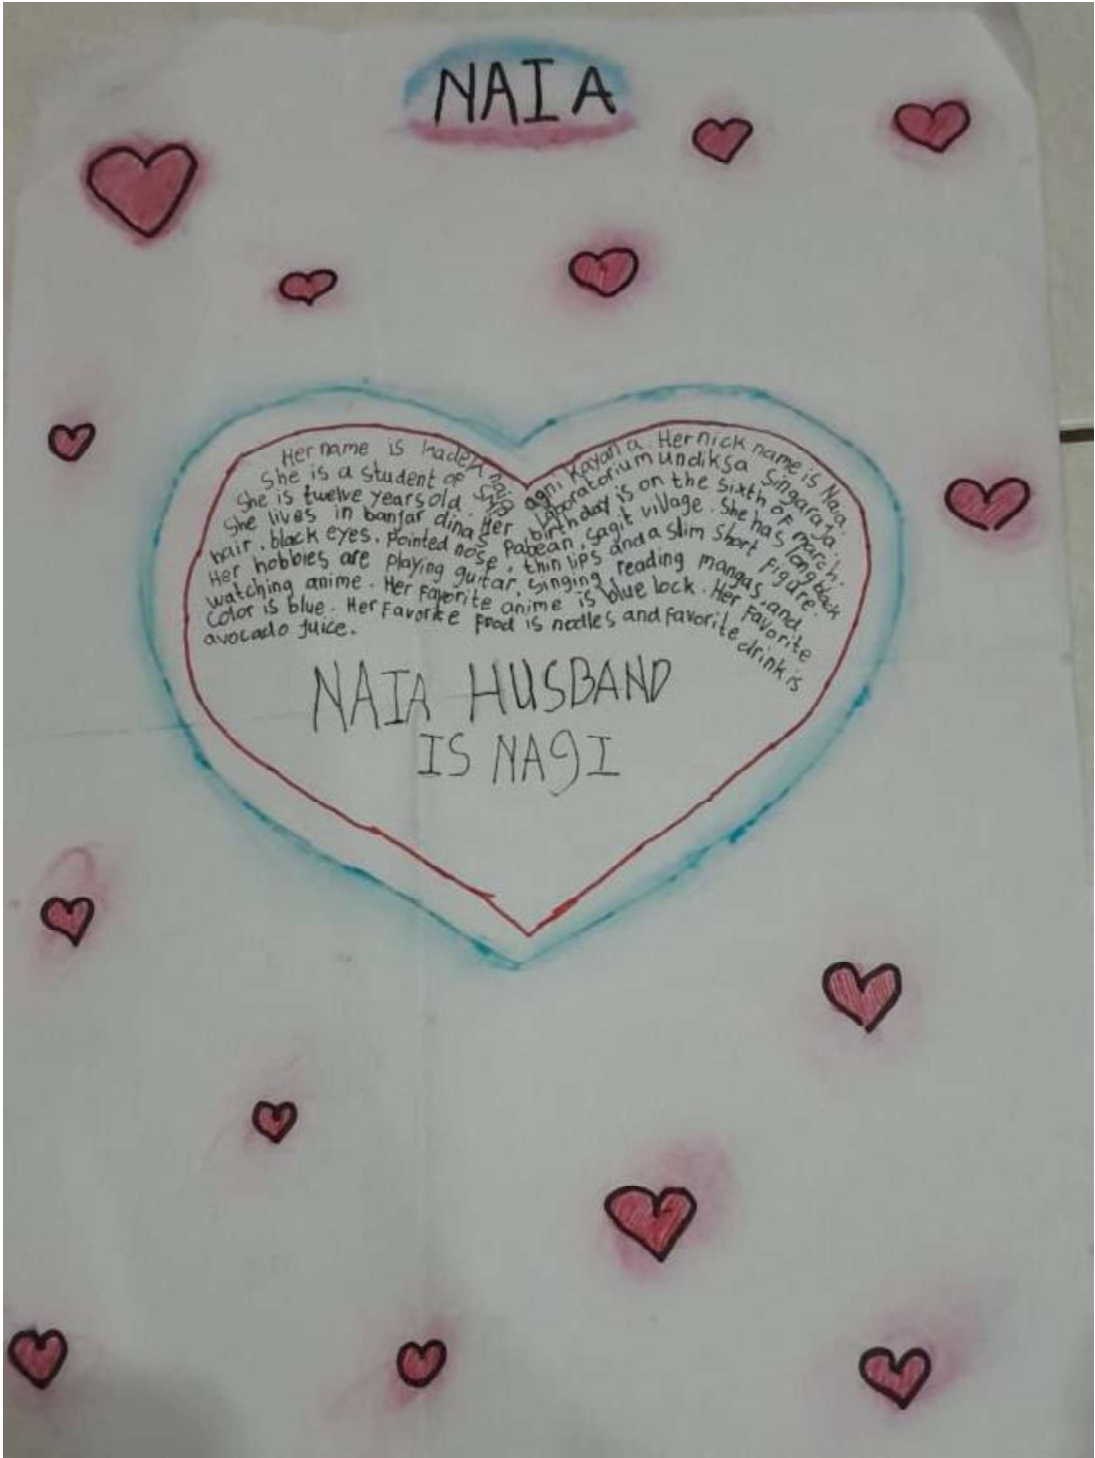 NAIA
Her name is kadek naia agni Kayana. Her nick name is Naia.
She is a student of SMP laboratorium undiksa Singaraja.
She is twelve years old. Her birthday is on the sixth of march.
She lives in banjar dinas Pabean, sagit village. She has long black
hair, black eyes, Pointed nose, thin lips and a slim short figure.
Her hobbies are playing guitar, singing, reading mangas, and
watching anime. Her Fayorite anime is blue lock. Her Favorite
Color is blue. Her Favorite Food is nodles and favorite drink is
avocado juice.
NAIA HUSBAND
IS NAgI